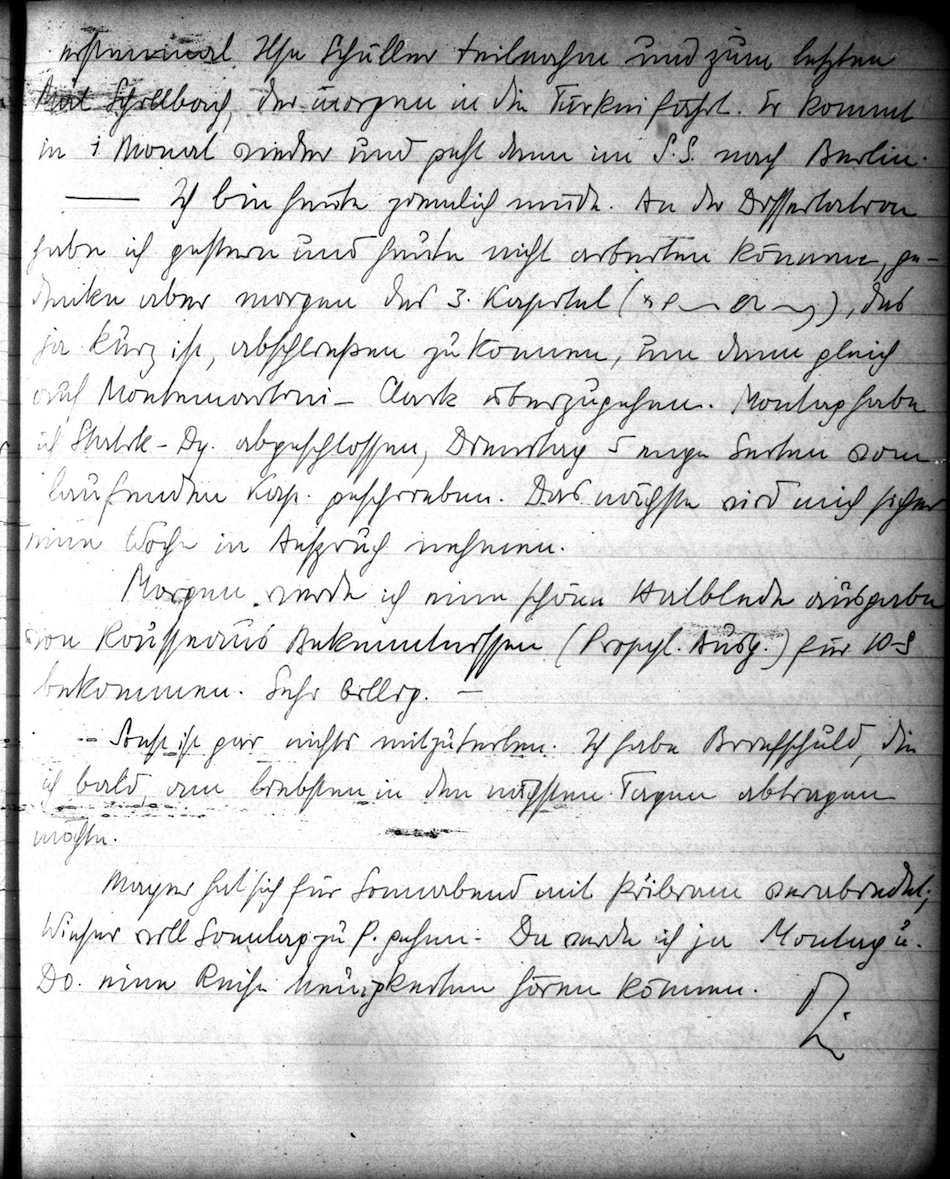 erstenmal Ilse Schüller teilnahm und zum letzten
Mal Schellbach, der morgen in die Türkei fährt. Er kommt
in 1 Monat wieder und geht dann im S.S. nach Berlin.
— Ich bin heute ziemlich müde. An der Dissertation
habe ich gestern und heute nicht arbeiten können, ge-
denke aber morgen das 3. Kapitel ( ), das
ja kurz ist, abschließen zu können, um dann gleich
auf Montemartini – Clark überzugehen. Montag habe
ich Statik-Dy. abgeschlossen, Dienstag 5 enge Seiten vom
laufenden Kap. geschrieben. Das nächste wird mich sicher
eine Woche in Anspruch nehmen.
Morgen werde ich eine schöne Halblederausgabe
von Rousseaus Bekenntnissen (Propyl. Ausg.) für 10 S
bekommen. Sehr billig. –
– Sonst ist gar nichts mitzuteilen. Ich habe Briefschuld, die
ich bald, am liebsten in den nächsten Tagen abtragen
möchte.
Mayer hat sich für Sonnabend mit Pribram verabredet,
Winter will Sonntag zu P. gehen. Da werde ich ja Montag u.
Do. eine Reihe Neuigkeiten hören können.